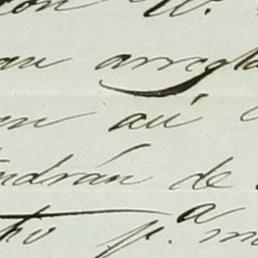 on W.
an arregla
en aú
ndrán de
tho p.ª m